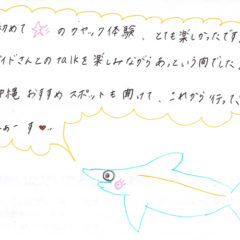 初めて ☆ のカヤック体験、とても楽しかったです
イドさんとの talk を楽しみながらあっという間でした
縄 おすすめ スポットも聞けて、これから行って
ーす ♥